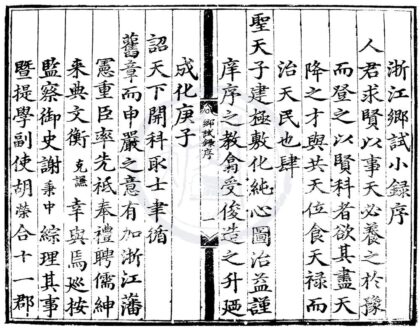 浙江鄉試小錄序
人君求賢以事天必養之於豫
而登之以賢科者欲其盡天
降之才與共天位食天祿而
治天民也肆
聖天子建極敷化純心圖治益謹
庠序之教翕受俊造之升廼
鄉試錄序 一
成化庚子
詔天下開科取士聿循
舊章而申嚴之意有加浙江藩
憲重臣率先祗奉禮聘儒紳
來典文衡克幸與焉廵按
監察御史謝秉中綜理其事
暨提學副使胡榮合十一郡